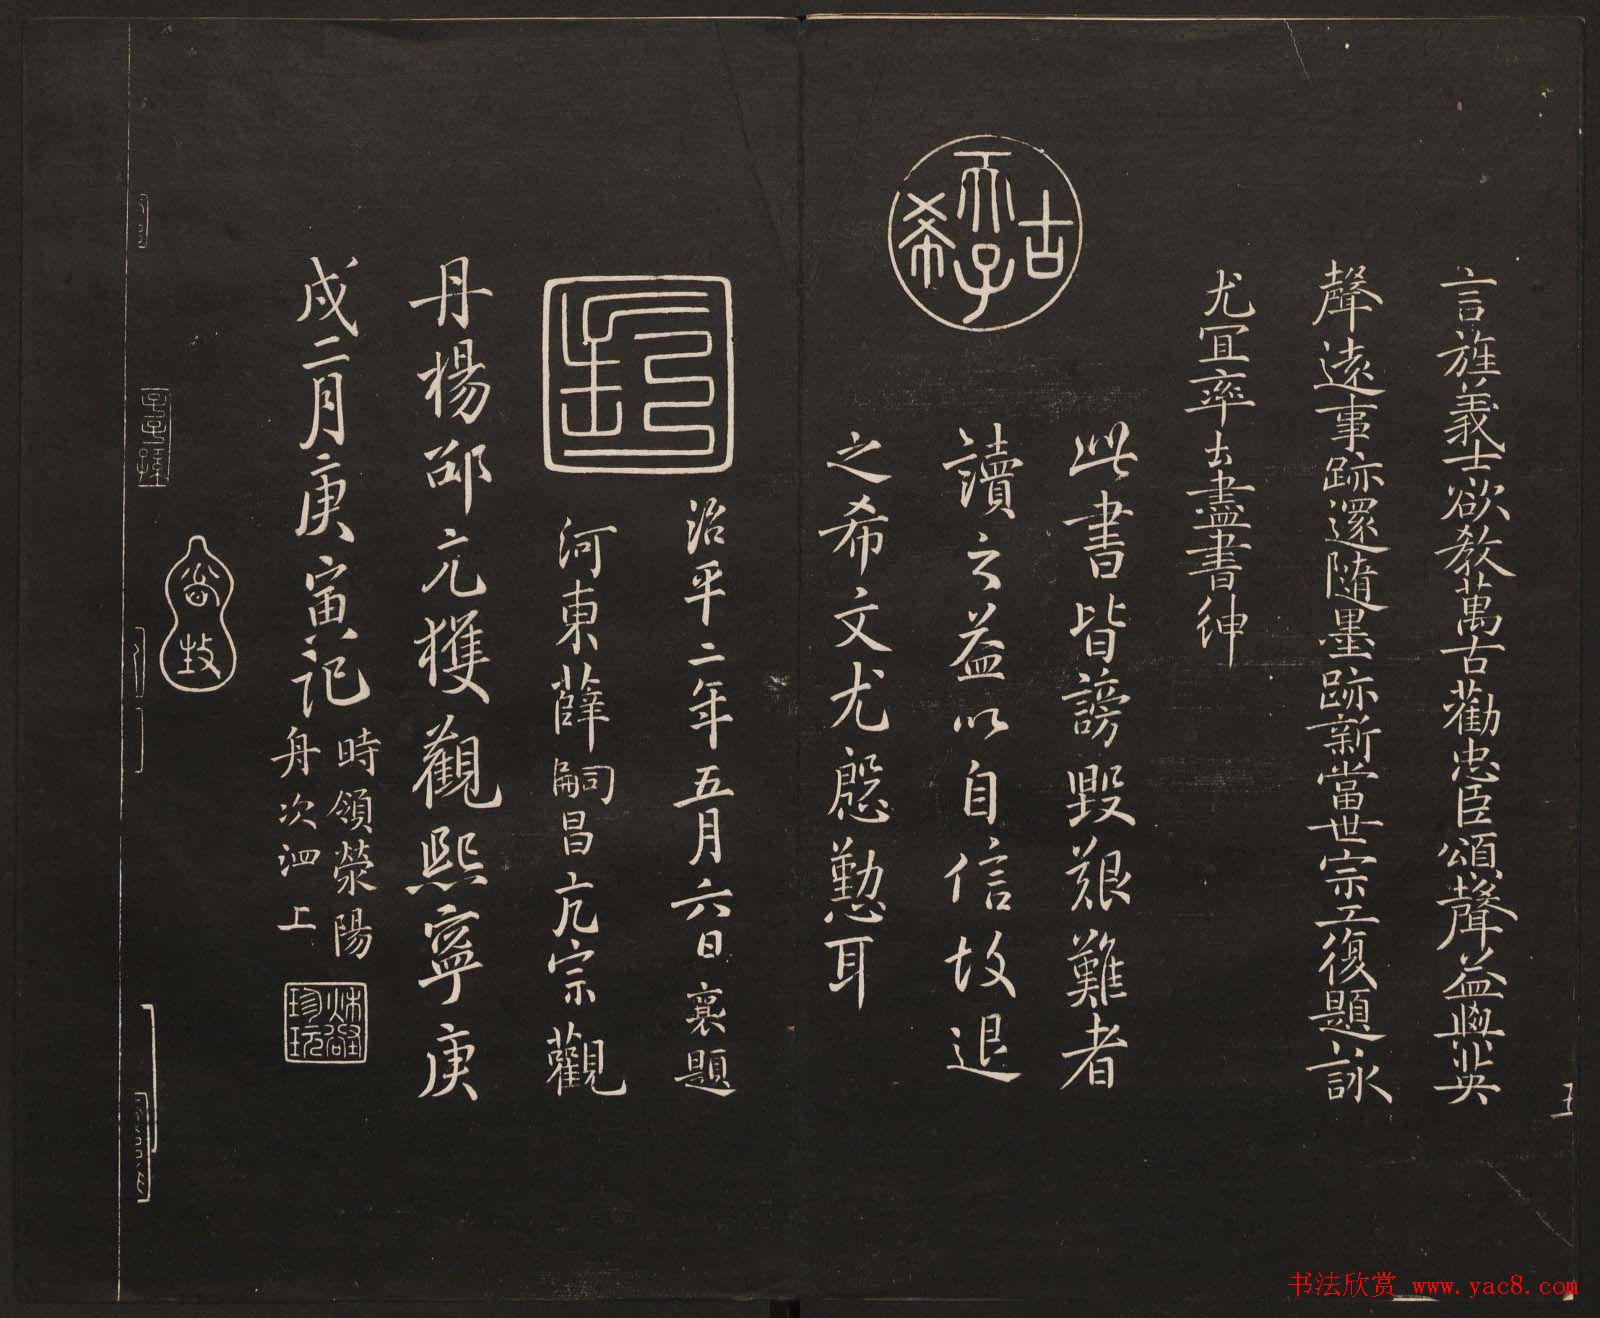 言旌義士欲教萬古勸忠臣頌聲益與英
聲遠事跡還隨墨跡新當世宗工復題詠
尤宜率土盡書紳
古
天子
希
此書皆謗毀艱難者
讀之益以自信故退
之希文尤慇懃耳
治平二年五月六日襄題
河東薛嗣昌亢宗觀
丹楊邵亢獲觀熙寧庚
戌二月庚寅記
時領滎陽
舟次泗上
珍玩
子孫
书法欣赏 www.yac8.com